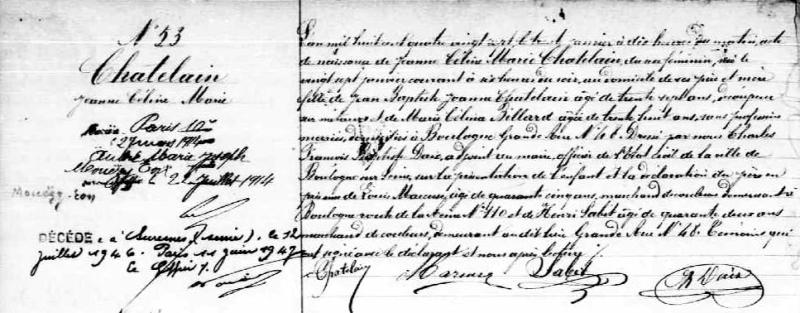 N° 53
Chatelain
Jeanne Céline Marie
Mariée Paris 10e
le 2 mars 1914
André Marie Joseph
Mouëzy Eon
le 22 juillet 1914
Mouëzy-Eon
DÉCÉDÉE à Suresnes, (Seine). le 12
juillet 1946. Paris 11 juin 1947
le Greffier /.
L'an mil huit cent quatre vingt sept, le janvier à dix heures du matin, acte
de naissance de Jeanne Céline Marie Chatelain, du sexe féminin, née le
vingt sept janvier courant à six heures du soir, au domicile de ses père et mère
fille de Jean Baptiste Chatelain âgé de trente sept ans, découpeur
sur métaux et de Marie Célina Billard âgée de trente huit ans, sans profession
mariés, domiciliés à Boulogne Grande Rue N° 46. Dressé par nous Charles
François Baptiste Daix, adjoint au maire, officier de l'Etat civil de la ville de
Boulogne sur Seine, sur la présentation de l'enfant et la déclaration du père en
présence de Louis âgé de quarante cinq ans, marchand de couleurs demeurant à
Boulogne route de la Reine N° 110 et de Henri Sabet âgé de quarante deux ans
marchand de couleurs, demeurant au dit lieu Grande Rue N° 46. Témoins qui
ont signé avec le déclarant et nous après lecture /.
Chatelain Sabet Daix